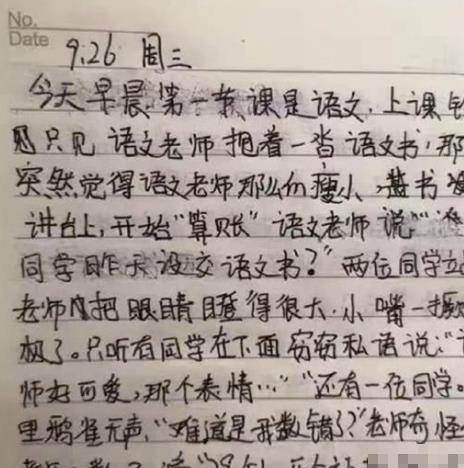 No.
Date
9.26 周三
今天早晨第一节课是语文,上课
见只见语文老师抱着一沓语文书,那
突然觉得语文老师那么的瘦小,
讲台上,开始"算账"语文老师说:"
同学昨天没交语文书?"两位同学
老师把眼睛瞪得很大,小嘴一撅
极了。只听有同学在下面窃窃私语说:"
师好可爱,那个表情…""还有一位同学。
里鸦雀无声,"难道是我数错了?"老师奇怪